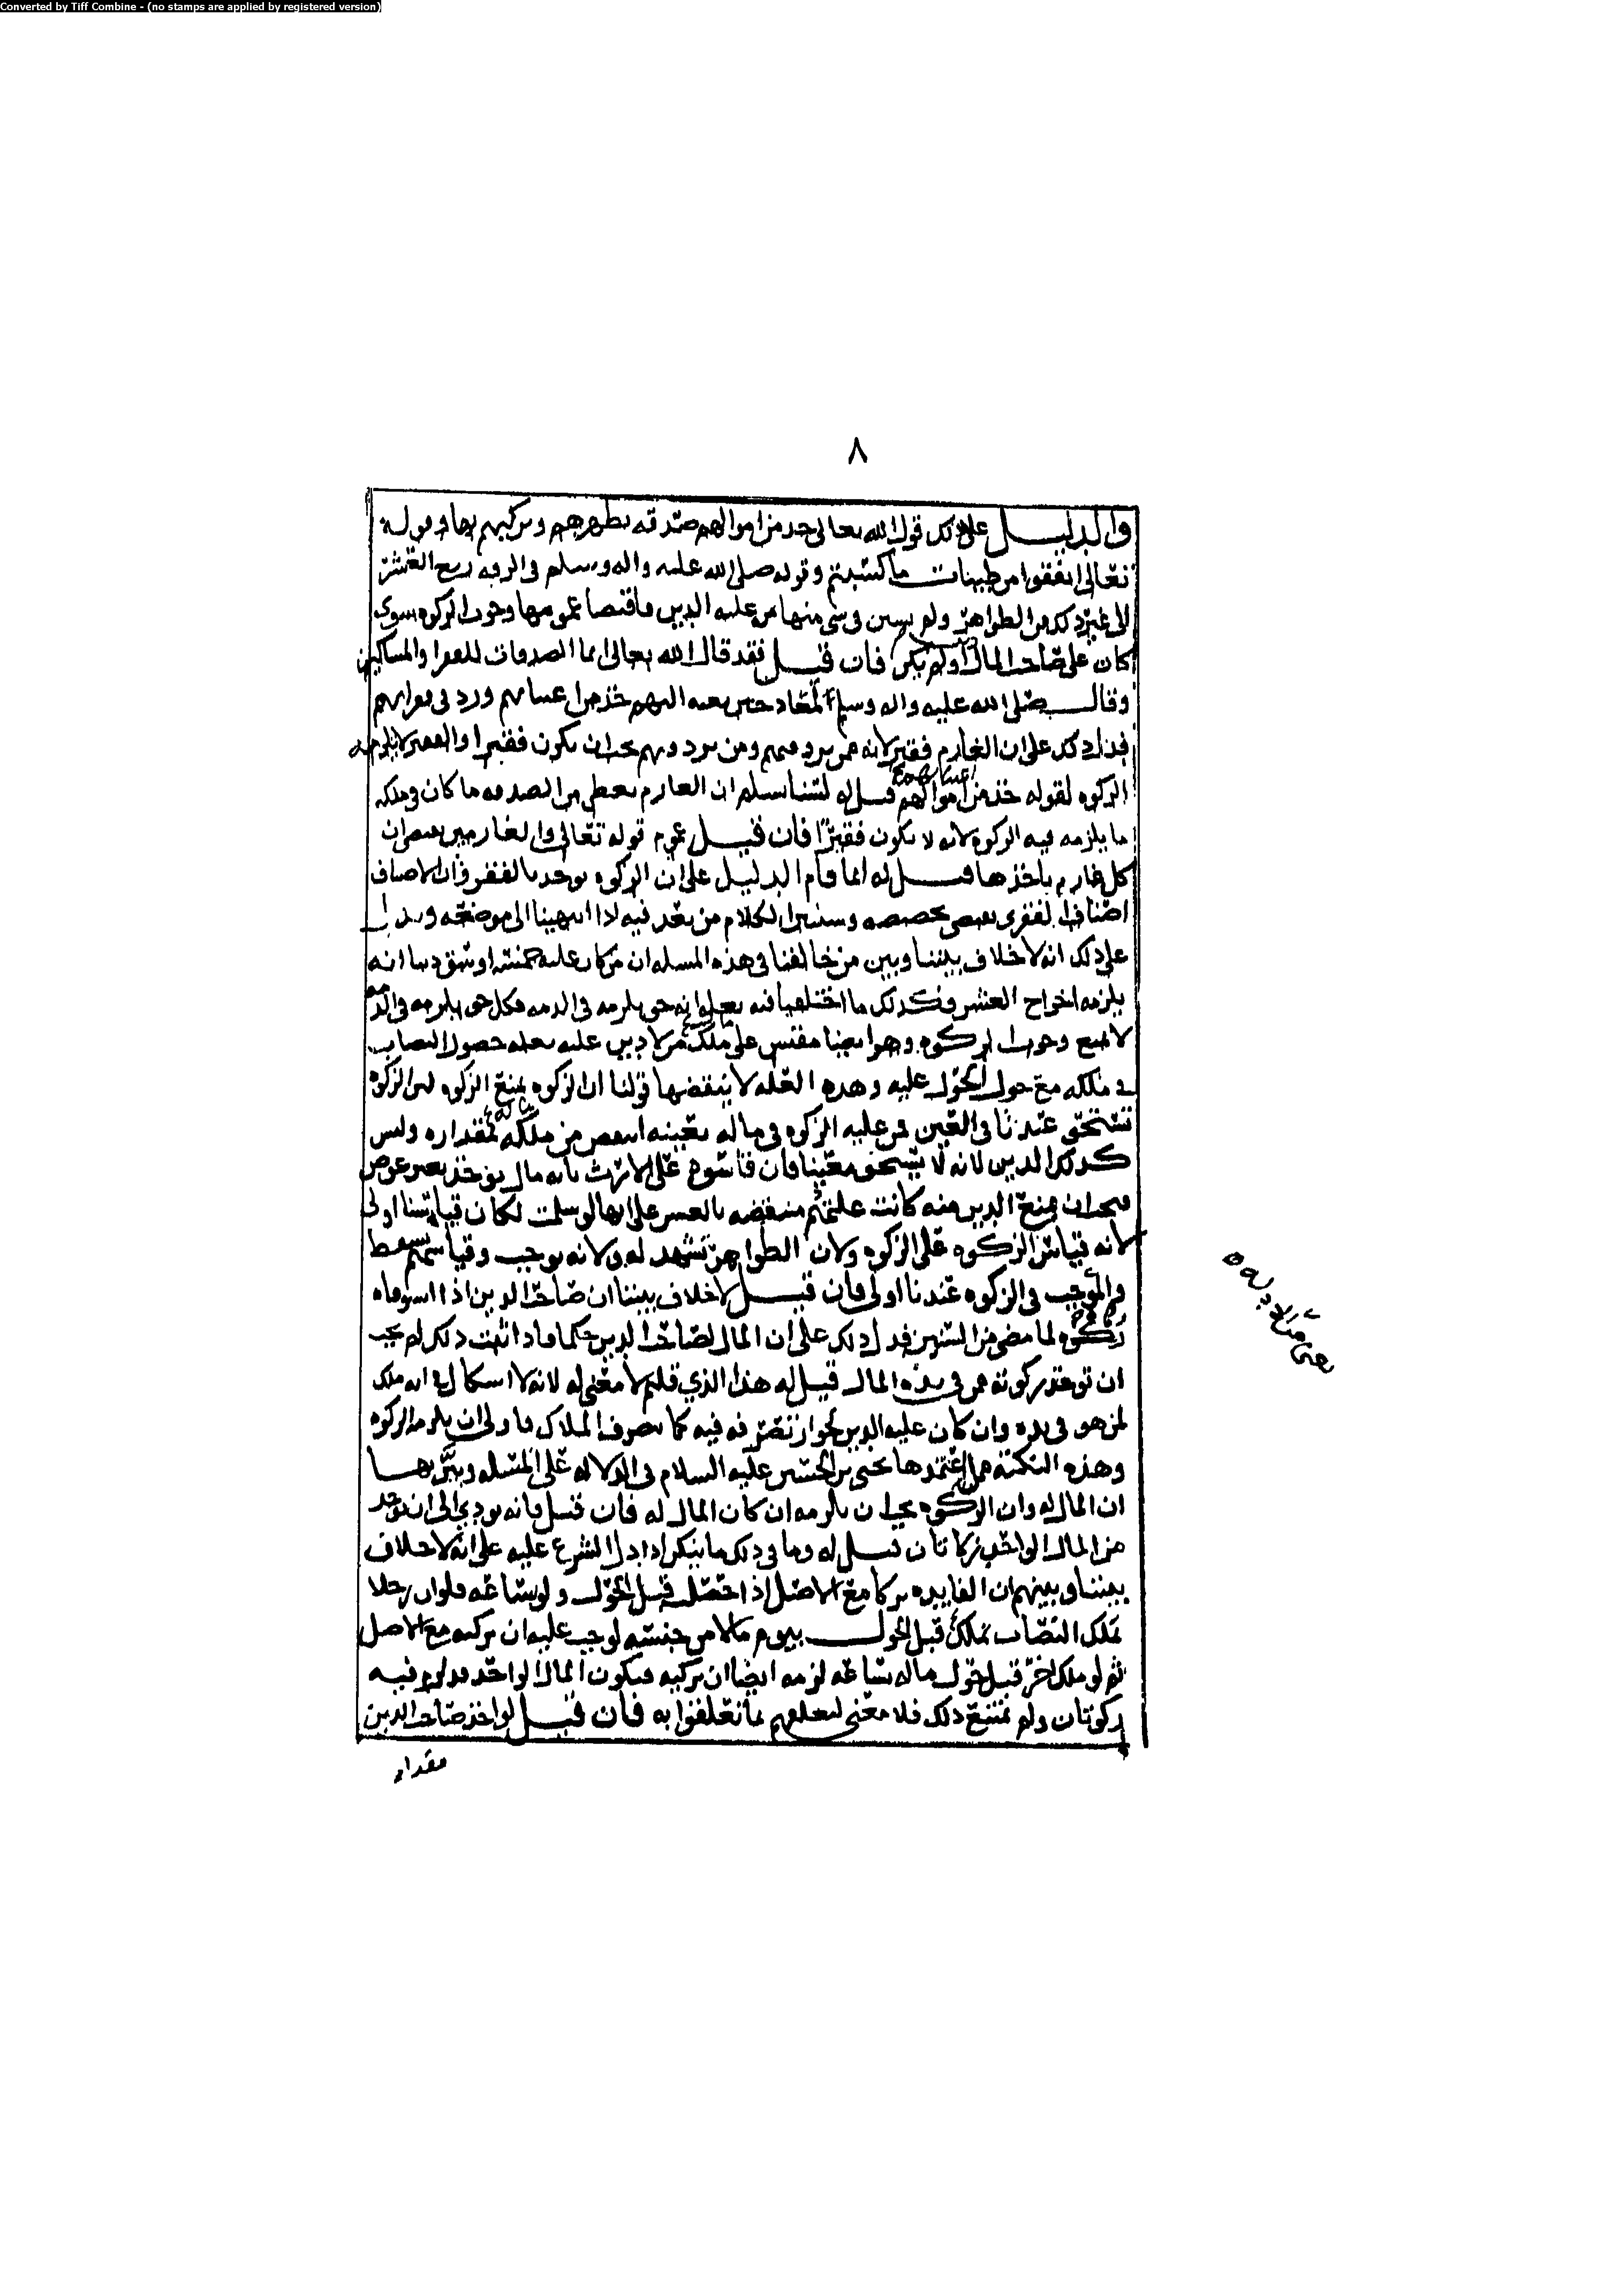 Converted by Tiff Combine - (no stamps are applied by registered version)
٨
والدليل على ذلك قول الله تعالى خذ من اموالهم صدقه تطهرهم وتزكيهم بها وقوله
تعالى انفقوا من طيبات ما كسبتم وقوله صلى الله عليه واله وسلم في الرقه ربع العشر
الى غير ذلك من الظواهر ولم يستثن في شي منها من عليه الدين فاقتضا عمومها وجوب الزكوه سوى
كان على صاحب المال دين او لم يكن فان قيل فقد قال الله تعالى انما الصدقات للفقرا والمساكين
وقال صلى الله عليه واله وسلم لمعاد حين بعثه اليهم خذ من اغنيائهم ورد في فقرائهم
فدل ذلك على ان الغارم فقير لانه ممن يرد فيهم ومن يرد فيهم يجب ان يكون فقيرا والفقير لا يلزمه
الزكوه لقوله خذ من اموالهم اغنيائهم قيل له لسنا نسلم ان الغارم يعطى من الصدقه ما كان في ملكه
ما يلزمه فيه الزكوه لانه لا يكون فقيرًا فان قيل عموم قوله تعالى والغارمين يقتضي ان
كل غارم ياخذها قيل له انما قام الدليل على ان الزكوه توخذ بالفقر وان الاصناف
اصناف الفقرى يقتضي تخصيصه وسنبين الكلام من بعد فيه اذا انتهينا الى موضعه ويدل
على ذلك انه لا خلاف بيننا وبين من خالفنا في هذه المسله ان من كان عليه خمسه اوسق دينا انه
يلزمه اخراج العشر فكذلك ما اختلفنا فيه بعلة انه حق يلزمه في الذمه فكل حق يلزمه في الذمه
لا يمنع وجوب الزكوه وهو ايضا مقيس على ملك من لا دين عليه بعله حصول النصاب
في ملكه مع حول الحول عليه وهذه العله لا ينقضها قولنا ان الزكوه تمنع الزكوه لان الزكوه
تستحق عندنا في العين فمن عليه الزكوه في ماله بعينه انتقص من ملكه بمقداره وليس
كذلك الدين لانه لا يستحق معينا فان قاسوه على الارث بانه مال يوخذ بغير عوض
فيجب ان يمنع الدين منه كانت علتهم منتقضه بالعشر على انها لو سلمت لكان قياسنا اولى
لانه قياس الزكوه على الزكوه ولان الظواهر تشهد له ولانه يوجب وقياسهم يسقط
والموجب في الزكوه عندنا اولى فان قيل لا خلاف بيننا ان صاحب الدين اذا استوفاه
زكوه لما مضى من السنين فدل ذلك على ان المال لصاحب الدين حكما فاذا اثبت ذلك لم يجب
ان توخذ زكوته ممن في يده المال قيل له هذا الذي قلتم لا معنى له لانه لا اشكال في انه ملك
لمن هو في يده وان كان عليه الدين لجواز تصرفه فيه كما يتصرف الملاك فاولى ان يلزمه الزكوه
وهذه النكته مما اعتمدها يحيى بن الحسين عليه السلام في الدلاله على المسله وبيّن بها
ان المال له وان الزكوه يجب ان يلزمه ان كان المال له فان قيل فانه يودي الى ان توخذ
من المال الواحد زكاتان قيل له وما في ذلك ما ينكر اذا دل الشرع عليه على انه لا خلاف
بيننا وبينهم ان الفايده تزكا مع الاصل اذا حصلت قبل الحول ولو بساعه فلو ان رجلا
ملك النصاب فملك قبل الحول بيوم مالا من جنسه لوجب عليه ان يزكيه مع الاصل
ثم لو ملكه اخر قبل حول ماله بساعه لزمه ايضا ان يزكيه فيكون المال الواحد قد لزم فيه
زكوتان ولم يمتنع ذلك فلا معنى لتعلقهم بما تعلقوا به فان قيل لو اخذ صاحب الدين
مقدار
يعني من لا دين له